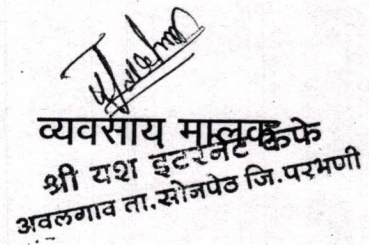 व्यवसाय मालक
श्री यश इंटरनेट कॅफे
अवलगाव ता.सोनपेठ जि.परभणी